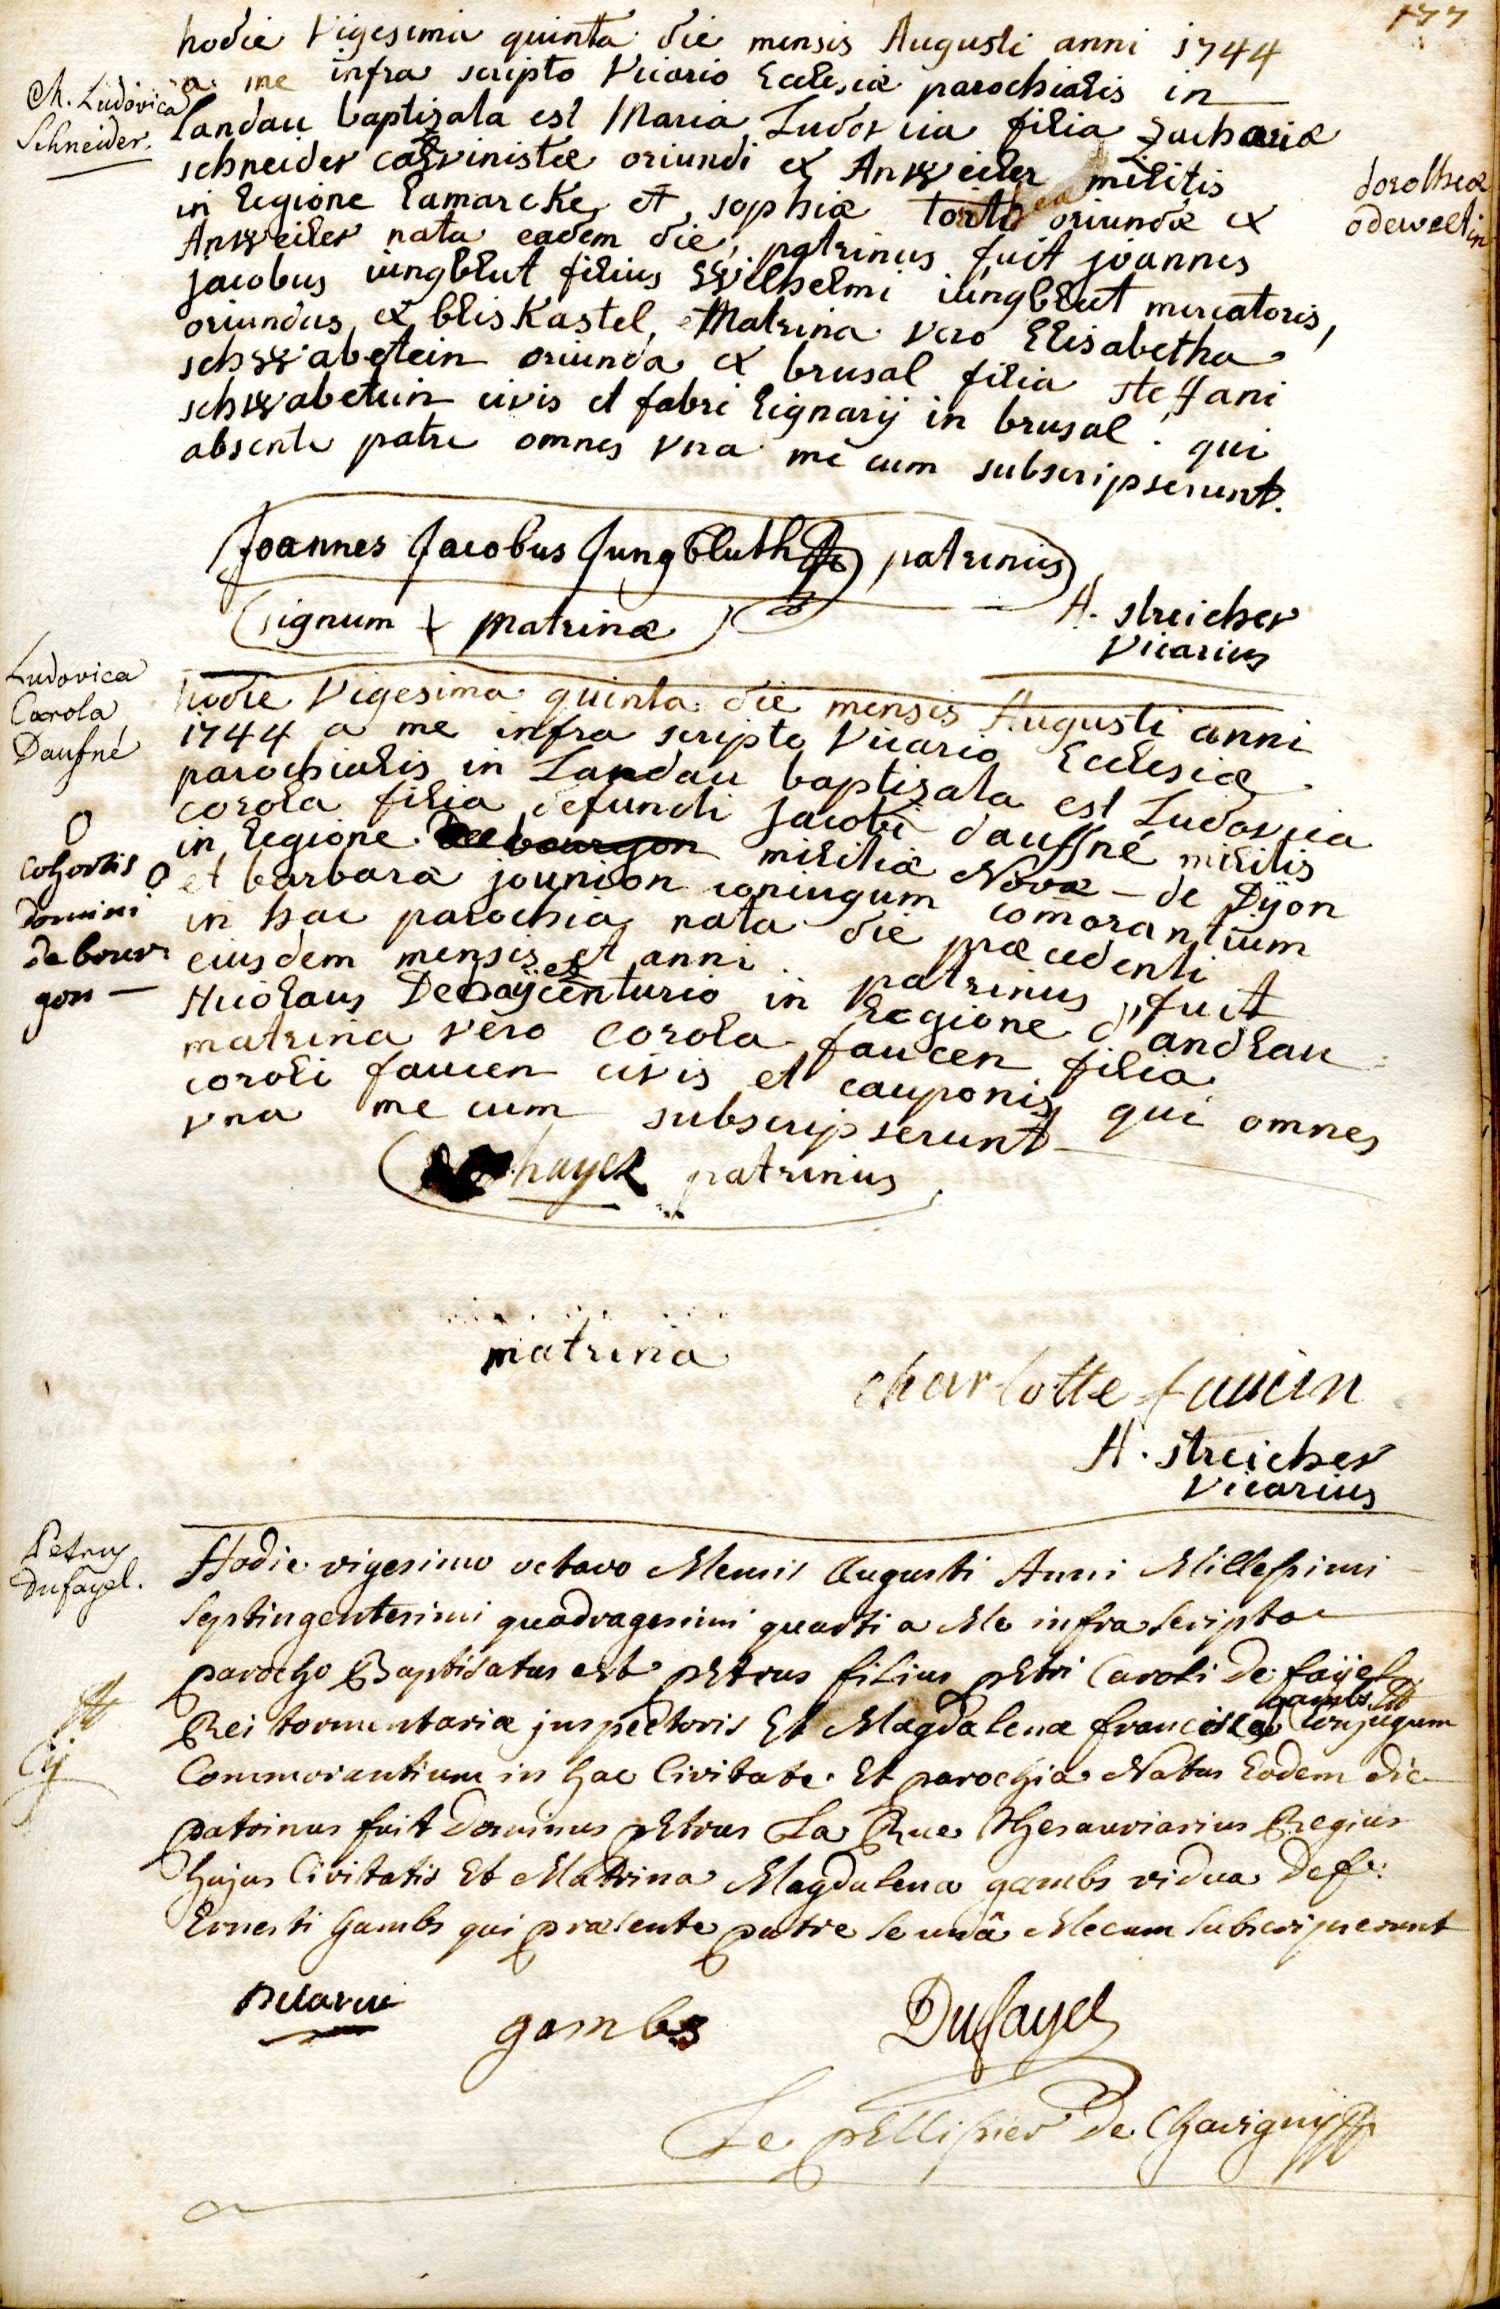 177
M. Ludovica
Schneider
hodie Vigesima quinta die mensis Augusti anni 1744
a me infra scripto Vicario Ecclesiæ parochialis in
Landau baptizata est Maria Ludovica filia Zachariæ
schneider calvinistæ oriundi ex Anweiler militis
in legione Lamarcke et sophiæ oriundæ ex
dorotheæ
odeweltin
Anweiler nata eadem die, patrinus fuit joannes
jacobus iungblut filius Wilhelmi iungblut mercatoris,
oriundus ex bliskastel, Matrina vero Elisabetha
schwabetein oriunda ex brusal filia steffani
schwabetein civis et fabri lignarij in brusal. qui
absente patre omnes vna me cum subscripserunt.
Joannes Jacobus Jungbluth patrinus
signum + matrinæ
A. streicher
Vicarius
Ludovica
Carola
Daufné
hodie Vigesima quinta die mensis Augusti anni
1744 a me infra scripto Vicario Ecclesiæ
parochialis in Landau baptizata est Ludovica
carola filia defuncti jacobi dauffné militis
in legione de bourgon militiæ Novæ de Dijon
cohortis
domini
de bour
gon
et barbaræ jounion coniugum com̄orantium
in hac parochia nata die præcedenti
eiusdem mensis et anni. patrinus fuit
Nicolaus centurio in legione d'andlau
matrina vero carola faucen filia
caroli faucen civis et cauponis qui omnes
vna me cum subscripserunt
hayek patrinus
matrina
charlotte faucin
A. streicher
Vicarius
Petrus
Dufayel.
Hodie vigesimo octavo Mensis Augusti Anni Millesimi
septingentesimi quadragesimi quarti a Me infra scripto
parocho Baptisatus est pEtrus filius pEtri Caroli de faÿel
Rei tormentariæ jnspectoris Et Magdalenæ franciscæ gambs Conjugum
Commorantium in hac Civitate Et parochia Natus Eodem die
patrinus fuit Dominus pEtrus La Rue thesauriarius Regius
hujus Civitatis Et Matrina Magdalena gambs vidua Def:
Ernesti gambs qui præsente patre se unâ Mecum subscripserunt
Delarue
gambs
Dufayel
Le pEllissier De Chavigny